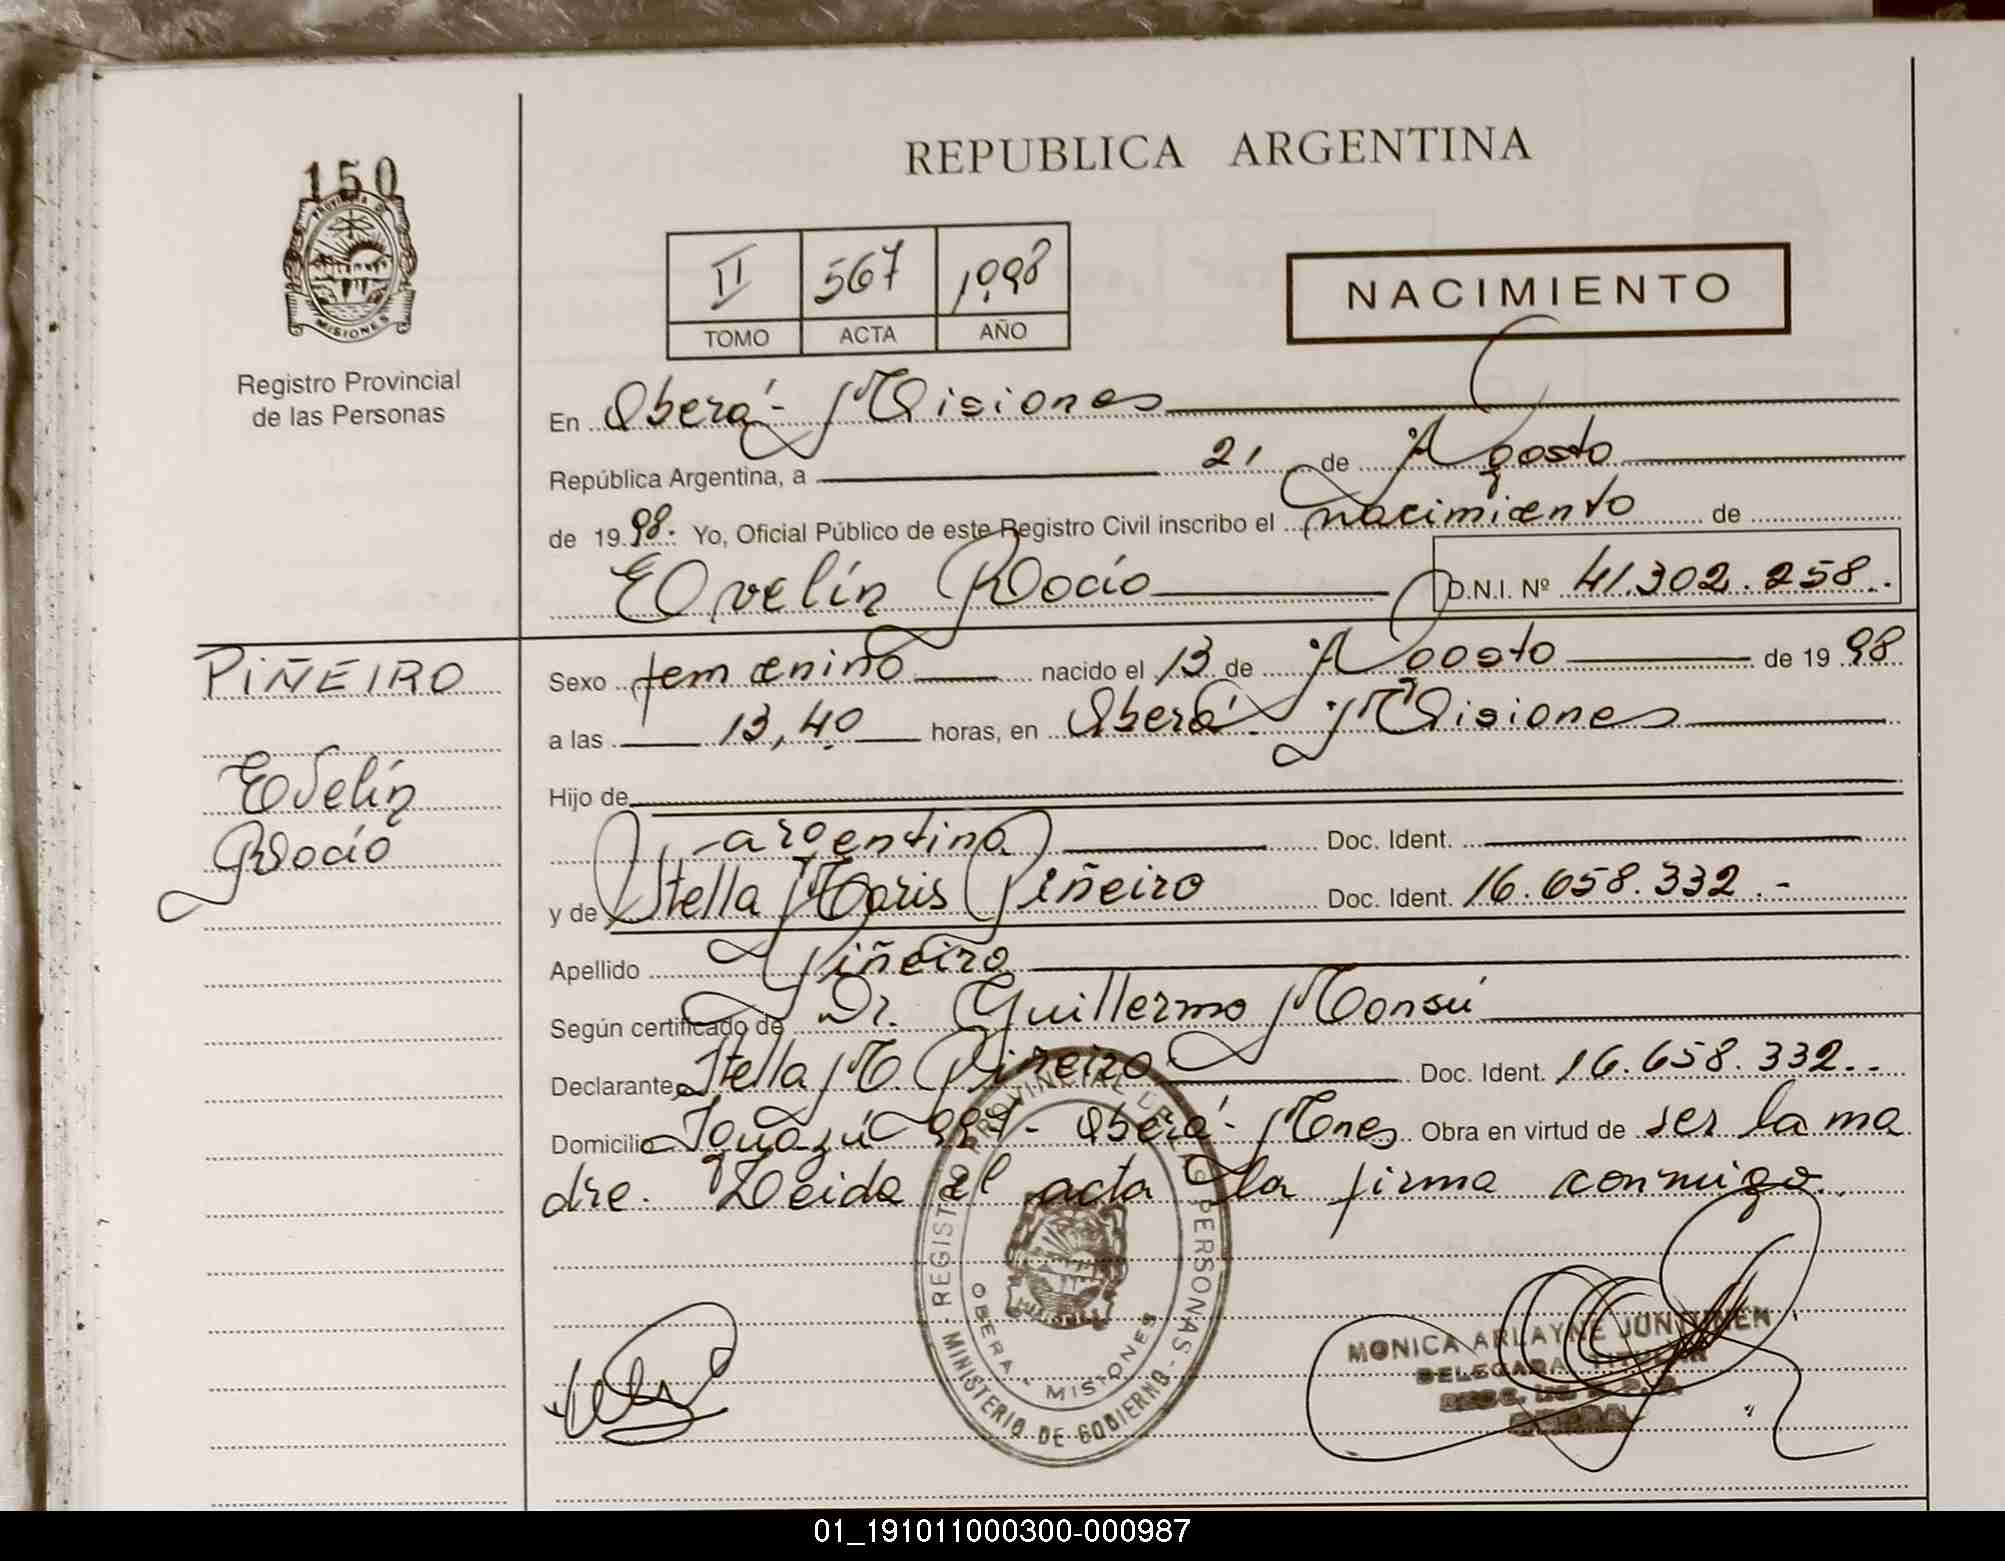 150
PROVINCIA DE
MISIONES
Registro Provincial
de las Personas
REPUBLICA ARGENTINA
II 567 1998
TOMO ACTA AÑO
NACIMIENTO
En Oberá - Misiones
República Argentina, a 21 de Agosto
de 1998. Yo, Oficial Público de este Registro Civil inscribo el nacimiento de
Evelín Rocío D.N.I. Nº 41.302.258.
PIÑEIRO
Evelín
Rocío
Sexo femenino nacido el 13 de Agosto de 1998
a las 13,40 horas, en Oberá - Misiones
Hijo de
-argentina Doc. Ident.
y de Stella Maris Piñeiro Doc. Ident. 16.658.332.-
Apellido Piñeiro
Según certificado de Dr. Guillermo Monsú
Declarante Stella M. Piñeiro Doc. Ident. 16.658.332.-
Domicilio Iguazú 997 - Oberá - Mnes Obra en virtud de ser la ma
dre. Leida el acta la firma conmigo.
REGISTRO PROVINCIAL DE LAS PERSONAS - MINISTERIO DE GOBIERNO -
OBERA - MISIONES
MONICA ARLAYNE
DELEGADA TITULAR
01_191011000300-000987